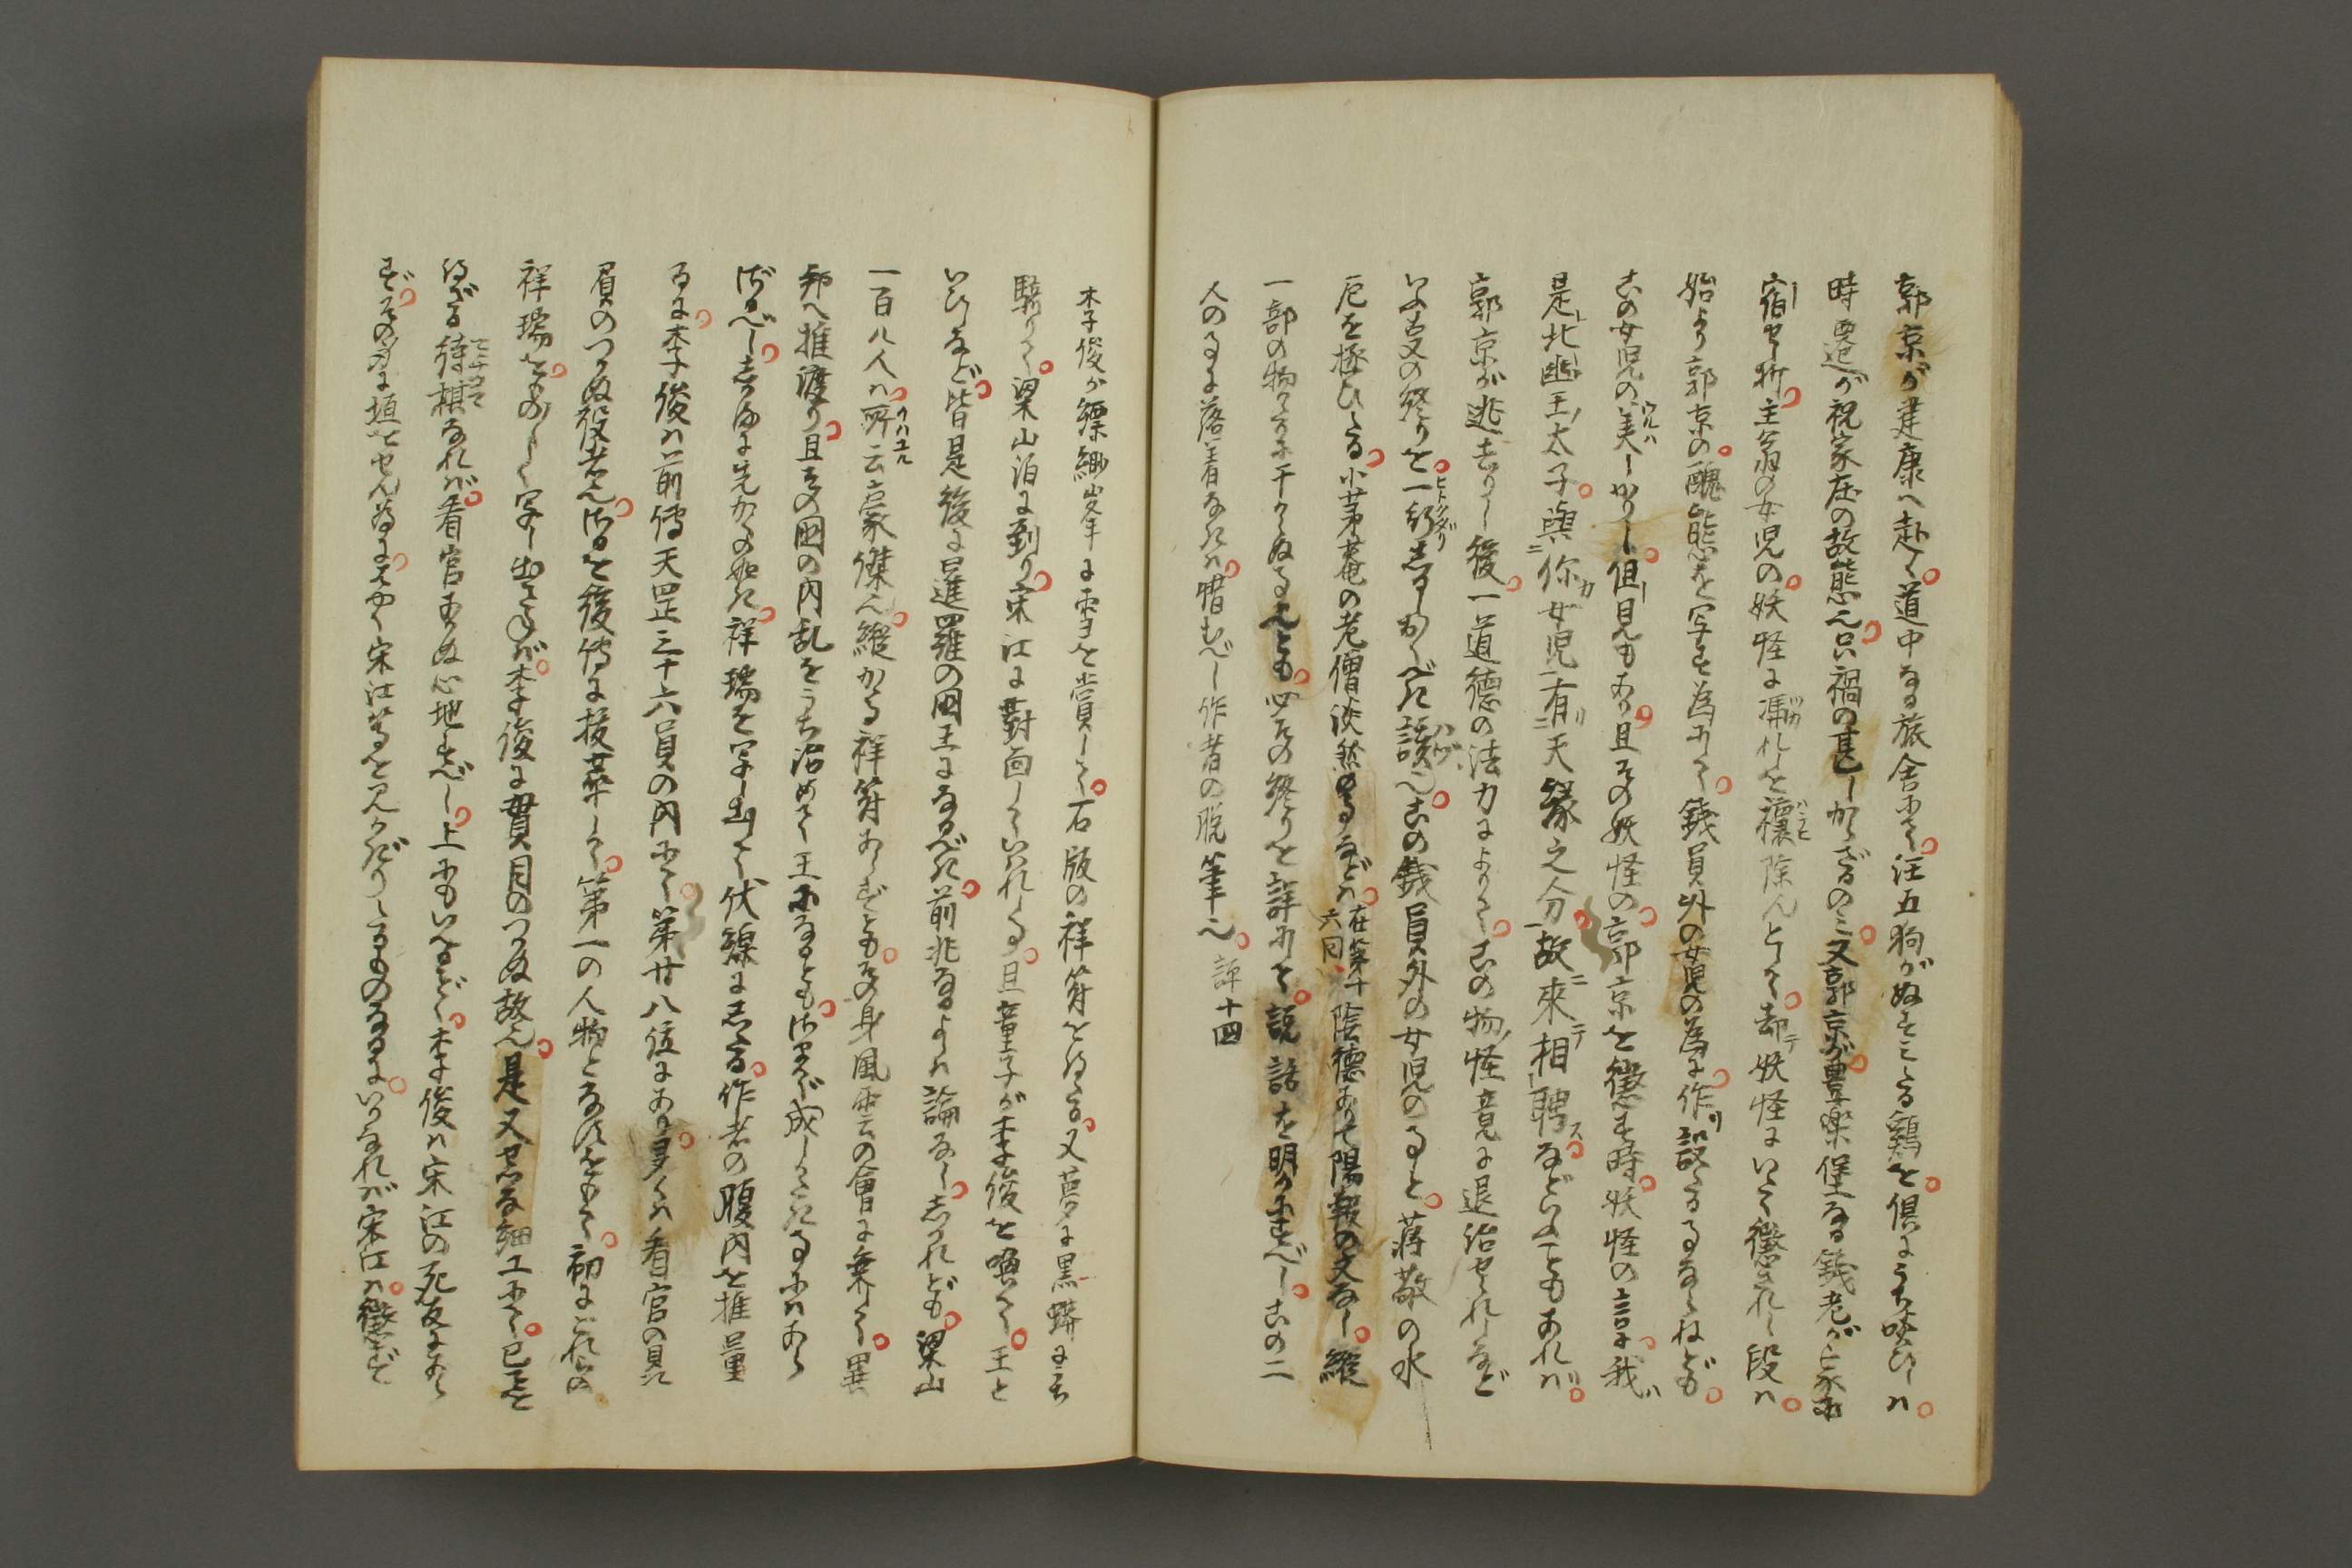 郭京が建康へ赴く。道中なる旅舎にて。汪五狗がぬすミたる鶏を。倶にうち啖ひしハ。
時遷が祝家庄の故態也。只禍の甚しからざるのミ。又郭京が。豊楽堡なる銭老が家に
宿せし折。主翁の女児の。妖怪に馮れしを禳除んとして。却テ妖怪にいたく懲されし段ハ。
始より郭京の。醜態を写す為にて。銭員外の女児の為に。作り設たるにあらねども。
この女児の美しかりし。但見もあり。且その妖怪の。郭京を懲す時。妖怪の言に。我ハ
是レ北幽王ノ太子。與ニ你カ女児一有リ二天縁之分一。故ニ來テ相聘スなどいふこともあれバ。
郭京が逃去りし後。一道徳の法力によりて。この物怪竟に退治せられしなど
いふ段の終りを。一行しるしおくべき筈也。この銭員外の女児の事と。蒋敬の水
厄を極ひたる。小茅菴の老僧淡然の事などハ。在第十六回 陰徳ありて陽報の文なし。縦
一部の物がたりに干からぬ事也とも。必その終りを詳にして。説話を明かにすべし。この二
人の事に落着なきハ。惜むべし作者の脱筆也。評十四
李俊が縹緲峯に雪を賞して。石版の祥符を得たる。又夢に黒蟒にうち
騎りて。梁山泊に到り。宋江に對面していはれし事。且童子が李俊を喚て。王と
いひしなど。皆是後に暹羅の国王になるべき。前兆なるよしハ論なし。しかれども。梁山
一百八人ハ。所云豪傑也。縦かゝる祥符あらずとも。その身風雲の會に乗りて。異
邦へ推渡り。且その国の内乱をうち治めて王になるとも。さまで成しがたき事にハあら
ざるべし。しかるに先かくの如き。祥瑞を写し出して伏線にしたる。作者の腹内を推量
るに。李俊ハ前傳天罡三十六員の内にて。第廿八位にあり。多くハ看官の贔
屓のつかぬ役者也。さるを後傳に抜萃して。第一の人物となすをもて。初にこれらの
祥瑞を。もて写し出さゞれバ。李俊に貫目のつかぬ故也。是又せざる細工にて。已ことを
得ざる待棋なれバ。看官あかぬ心地すべし。上にもいへるごとく。李俊ハ宋江の死友にあら
ず。その身に垣をせん為に。はやく宋江等を見かぎりたるものなるに。いかなれバ宋江ハ。懲ず